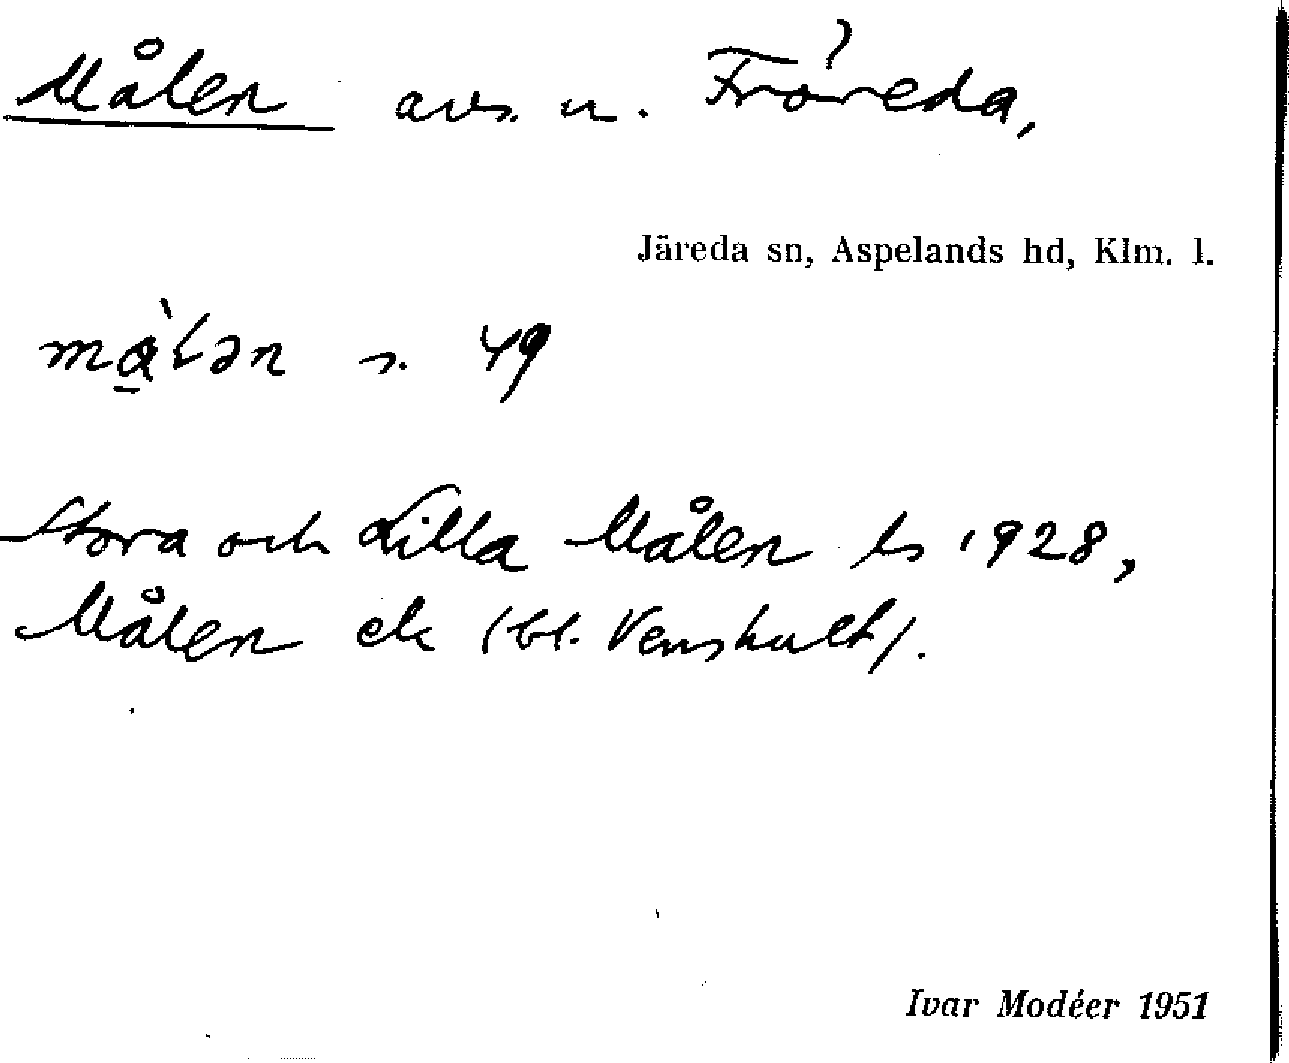 Målen avs. u. Fröreda,
Järeda sn, Aspelands hd, Klm. l.
s. 49
Stora och Lilla Målen ts 1928,
Målen ek (bl. Venshult).
Ivar Modéer 1951